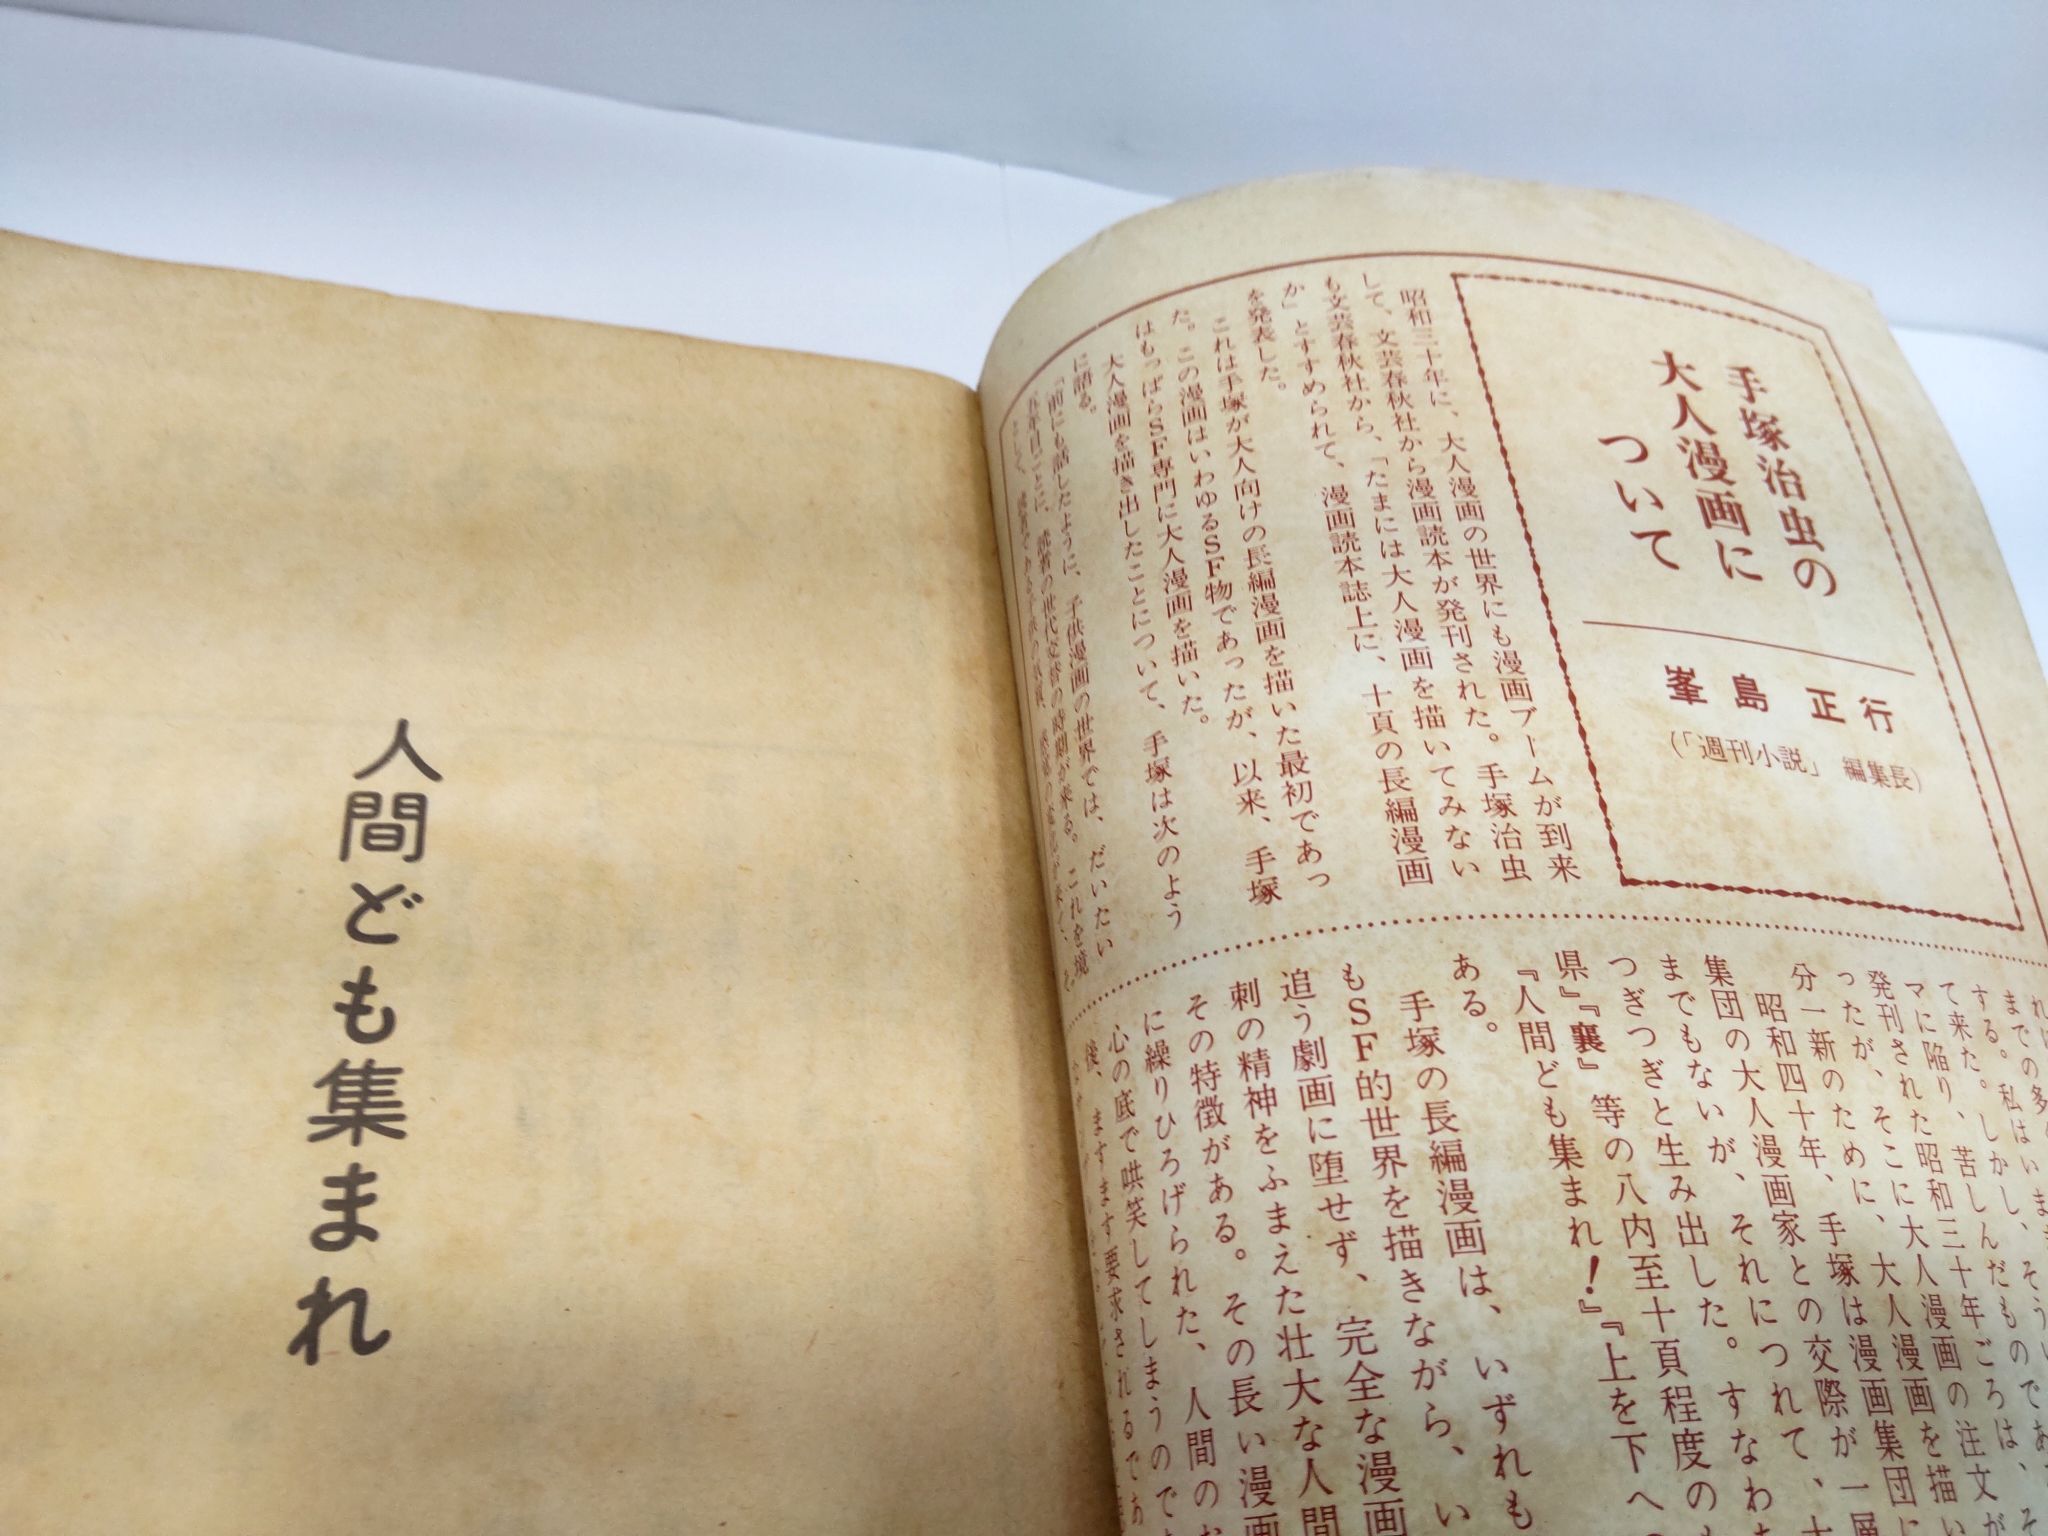 手塚治虫の
大人漫画に
ついて
峯島 正行
(「週刊小説」 編集長)
昭和三十年に、大人漫画の世界にも漫画ブームが到来
して、文芸春秋社から漫画読本が発刊された。手塚治虫
も文芸春秋社から、「たまには大人漫画を描いてみない
か」とすすめられて、漫画読本誌上に、十頁の長編漫画
を発表した。
これは手塚が大人向けの長編漫画を描いた最初であっ
た。この漫画はいわゆるSF物であったが、以来、手塚
はもっぱらSF専門に大人漫画を描いた。
大人漫画を描き出したことについて、手塚は次のよう
に語る。
「前にも話したように、子供漫画の世界では、だいたい
五年目ごとに、読者の世代交替の時期が来る。これを境
までの多
する。私はいま
て来た。しかし、そうい
マに陥り、苦しんだものであ
発刊された昭和三十年ごろは、
ったが、そこに大人漫画の注文が
分一新のために、大人漫画を描い
昭和四十年、手塚は漫画集団に
集団の大人漫画家との交際が一層
までもないが、それにつれて、十
つぎつぎと生み出した。すなわち
県』『襄』 等の八内至十頁程度の
『人間ども集まれ!』『上を下への
ある。
手塚の長編漫画は、いずれも
もSF的世界を描きながら、い
追う劇画に堕せず、完全な漫画
刺の精神をふまえた壮大な人間
その特徴がある。その長い漫画
に繰りひろげられた、人間の
心の底で哄笑してしまうので
後、ますます要求されるであ
人間ども集まれ